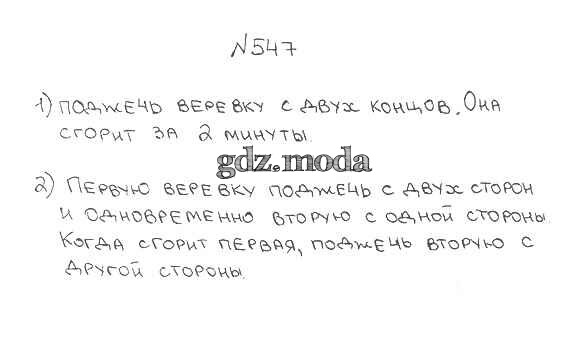 №547
1) Поджечь веревку с двух концов. Она
сгорит за 2 минуты.
gdz.moda
2) Первую веревку поджечь с двух сторон
и одновременно вторую с одной стороны.
Когда сгорит первая, поджечь вторую с
другой стороны.